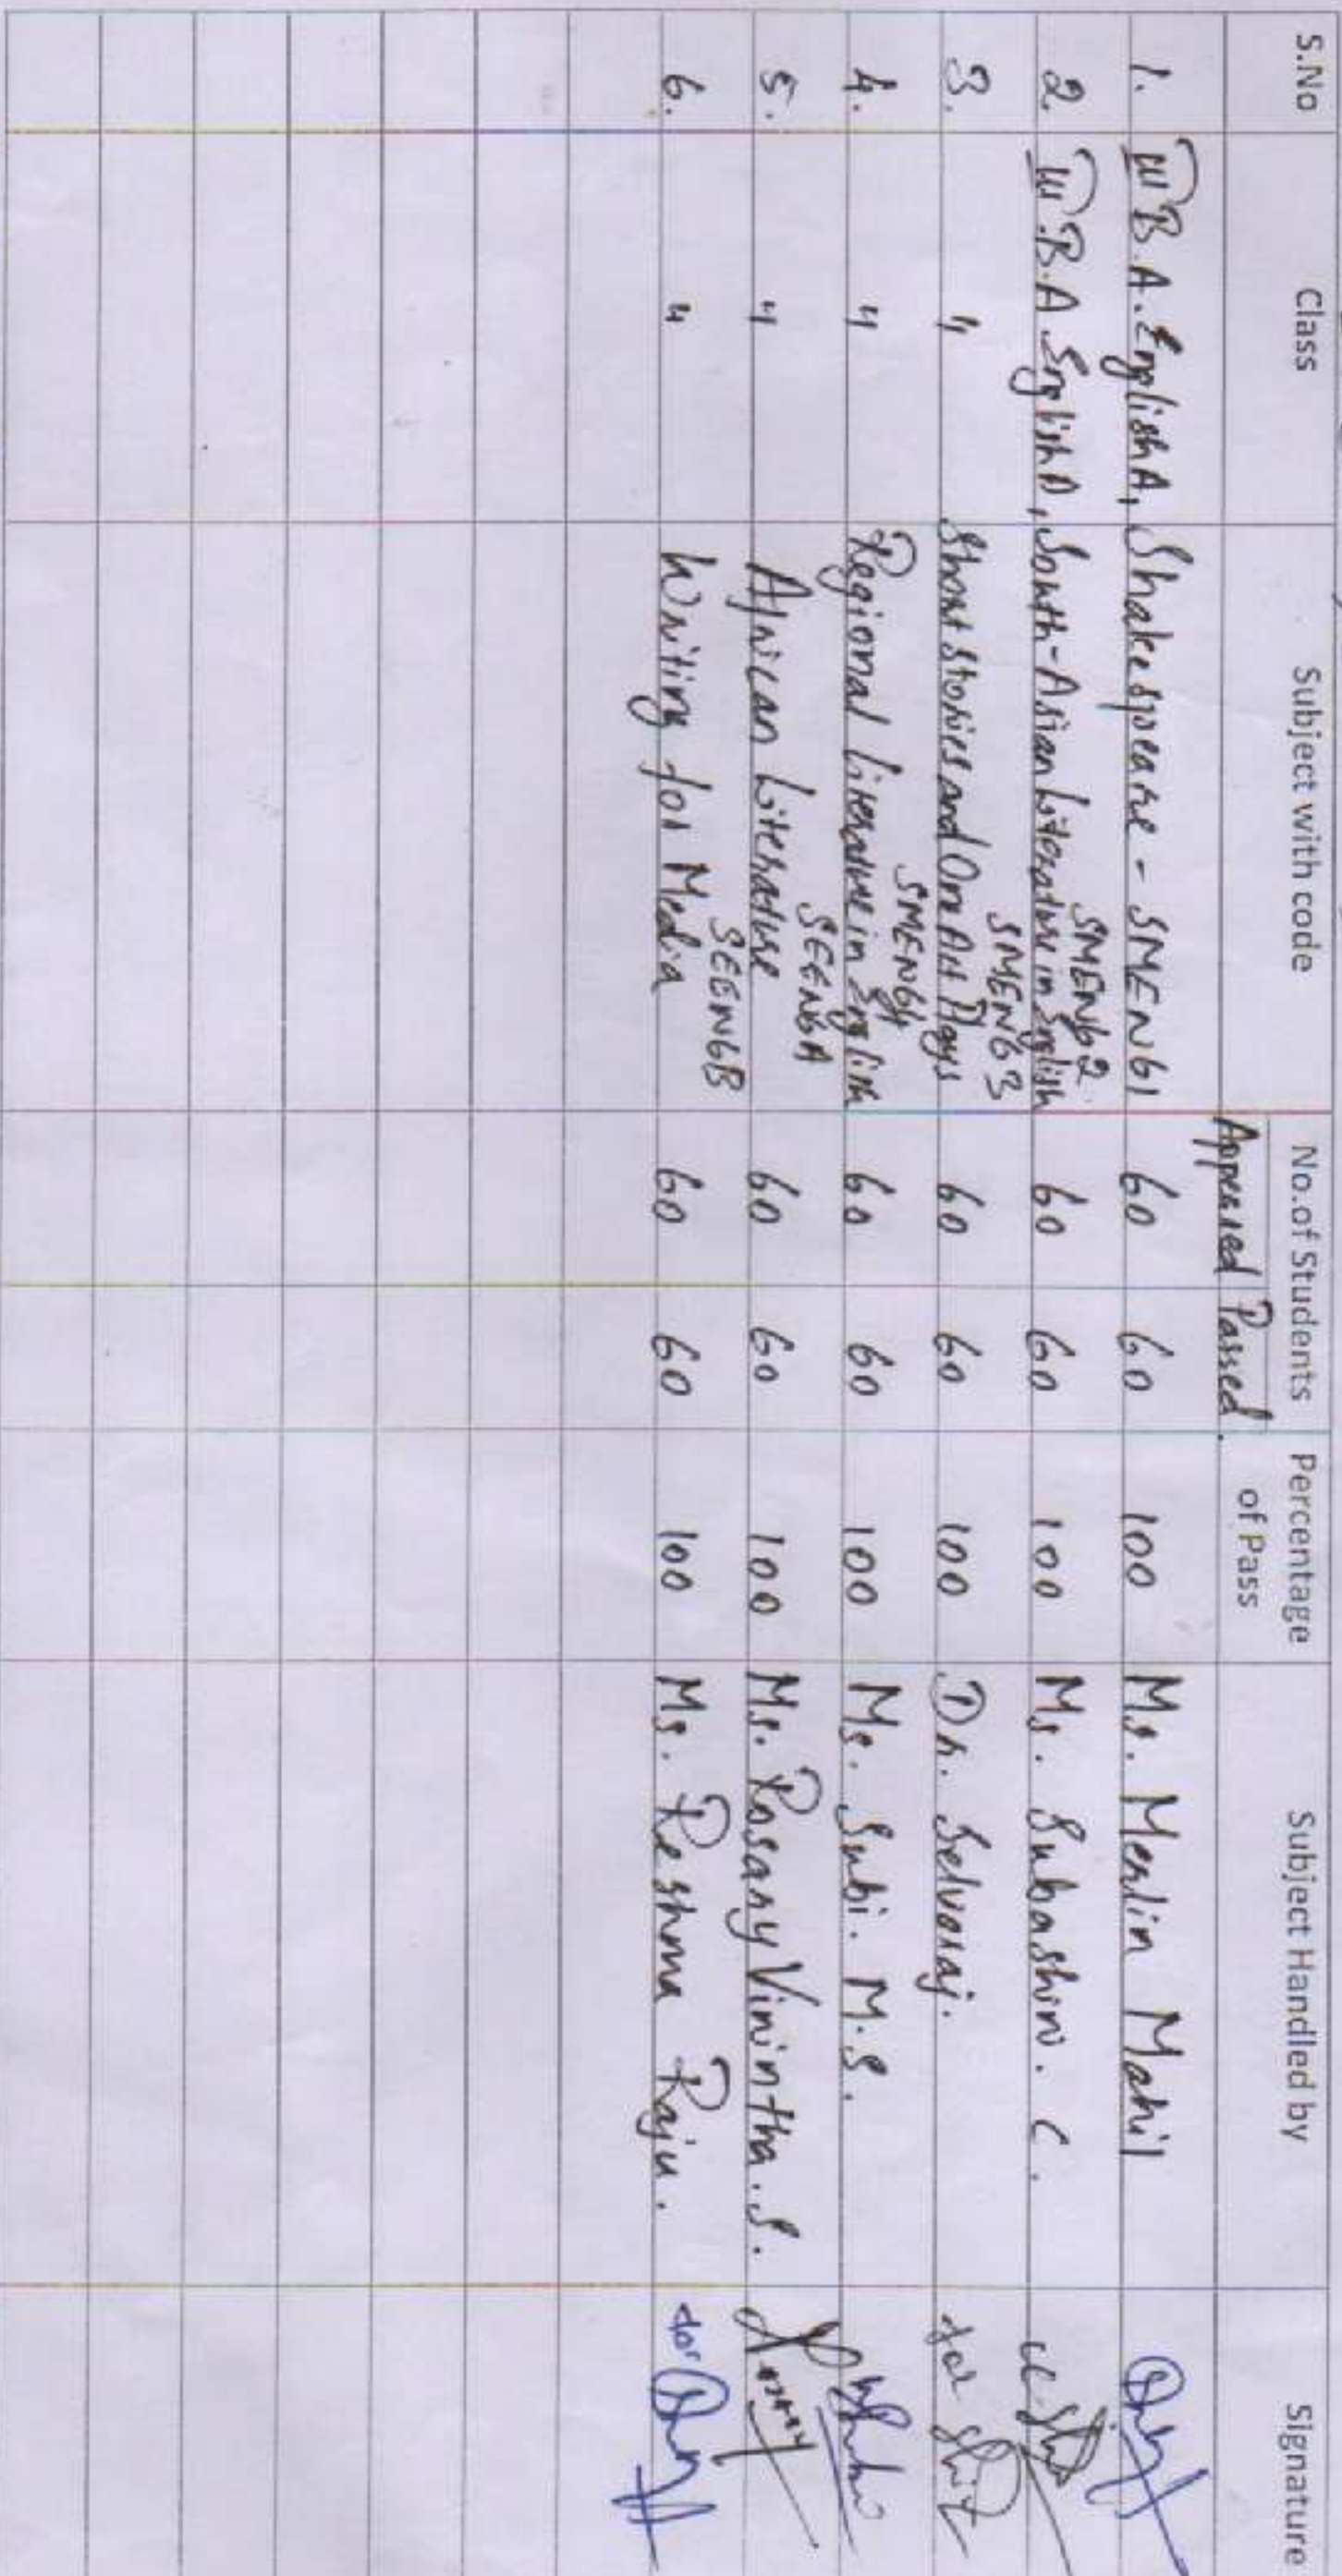 S.No Class Subject with code No.of Students Percentage of Pass Subject Handled by Signature
Appeared Passed
1. III B.A. English A, Shakespeare - SMEN61 60 60 100 Ms. Merlin Mahil
SMEN62
2. III B.A. English A, South-Asian Literature in English 60 60 100 Ms. Subashini. C.
SMEN63
3. " Short stories and One Act Plays 60 60 100 Dr. Selvaraj. for
SMEN64
4. " Regional Literature in English 60 60 100 Ms. Subi. M.S.
SEEN6A
5. " African Literature 60 60 100 Ms. Rosary Vinintha. S.
SEEN6B
6. " Writing for Media 60 60 100 Ms. Reshma Raju. for